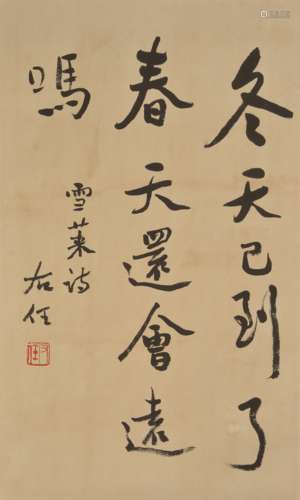 冬天已到了
春天還會遠
嗎
雪萊詩
右任
右任